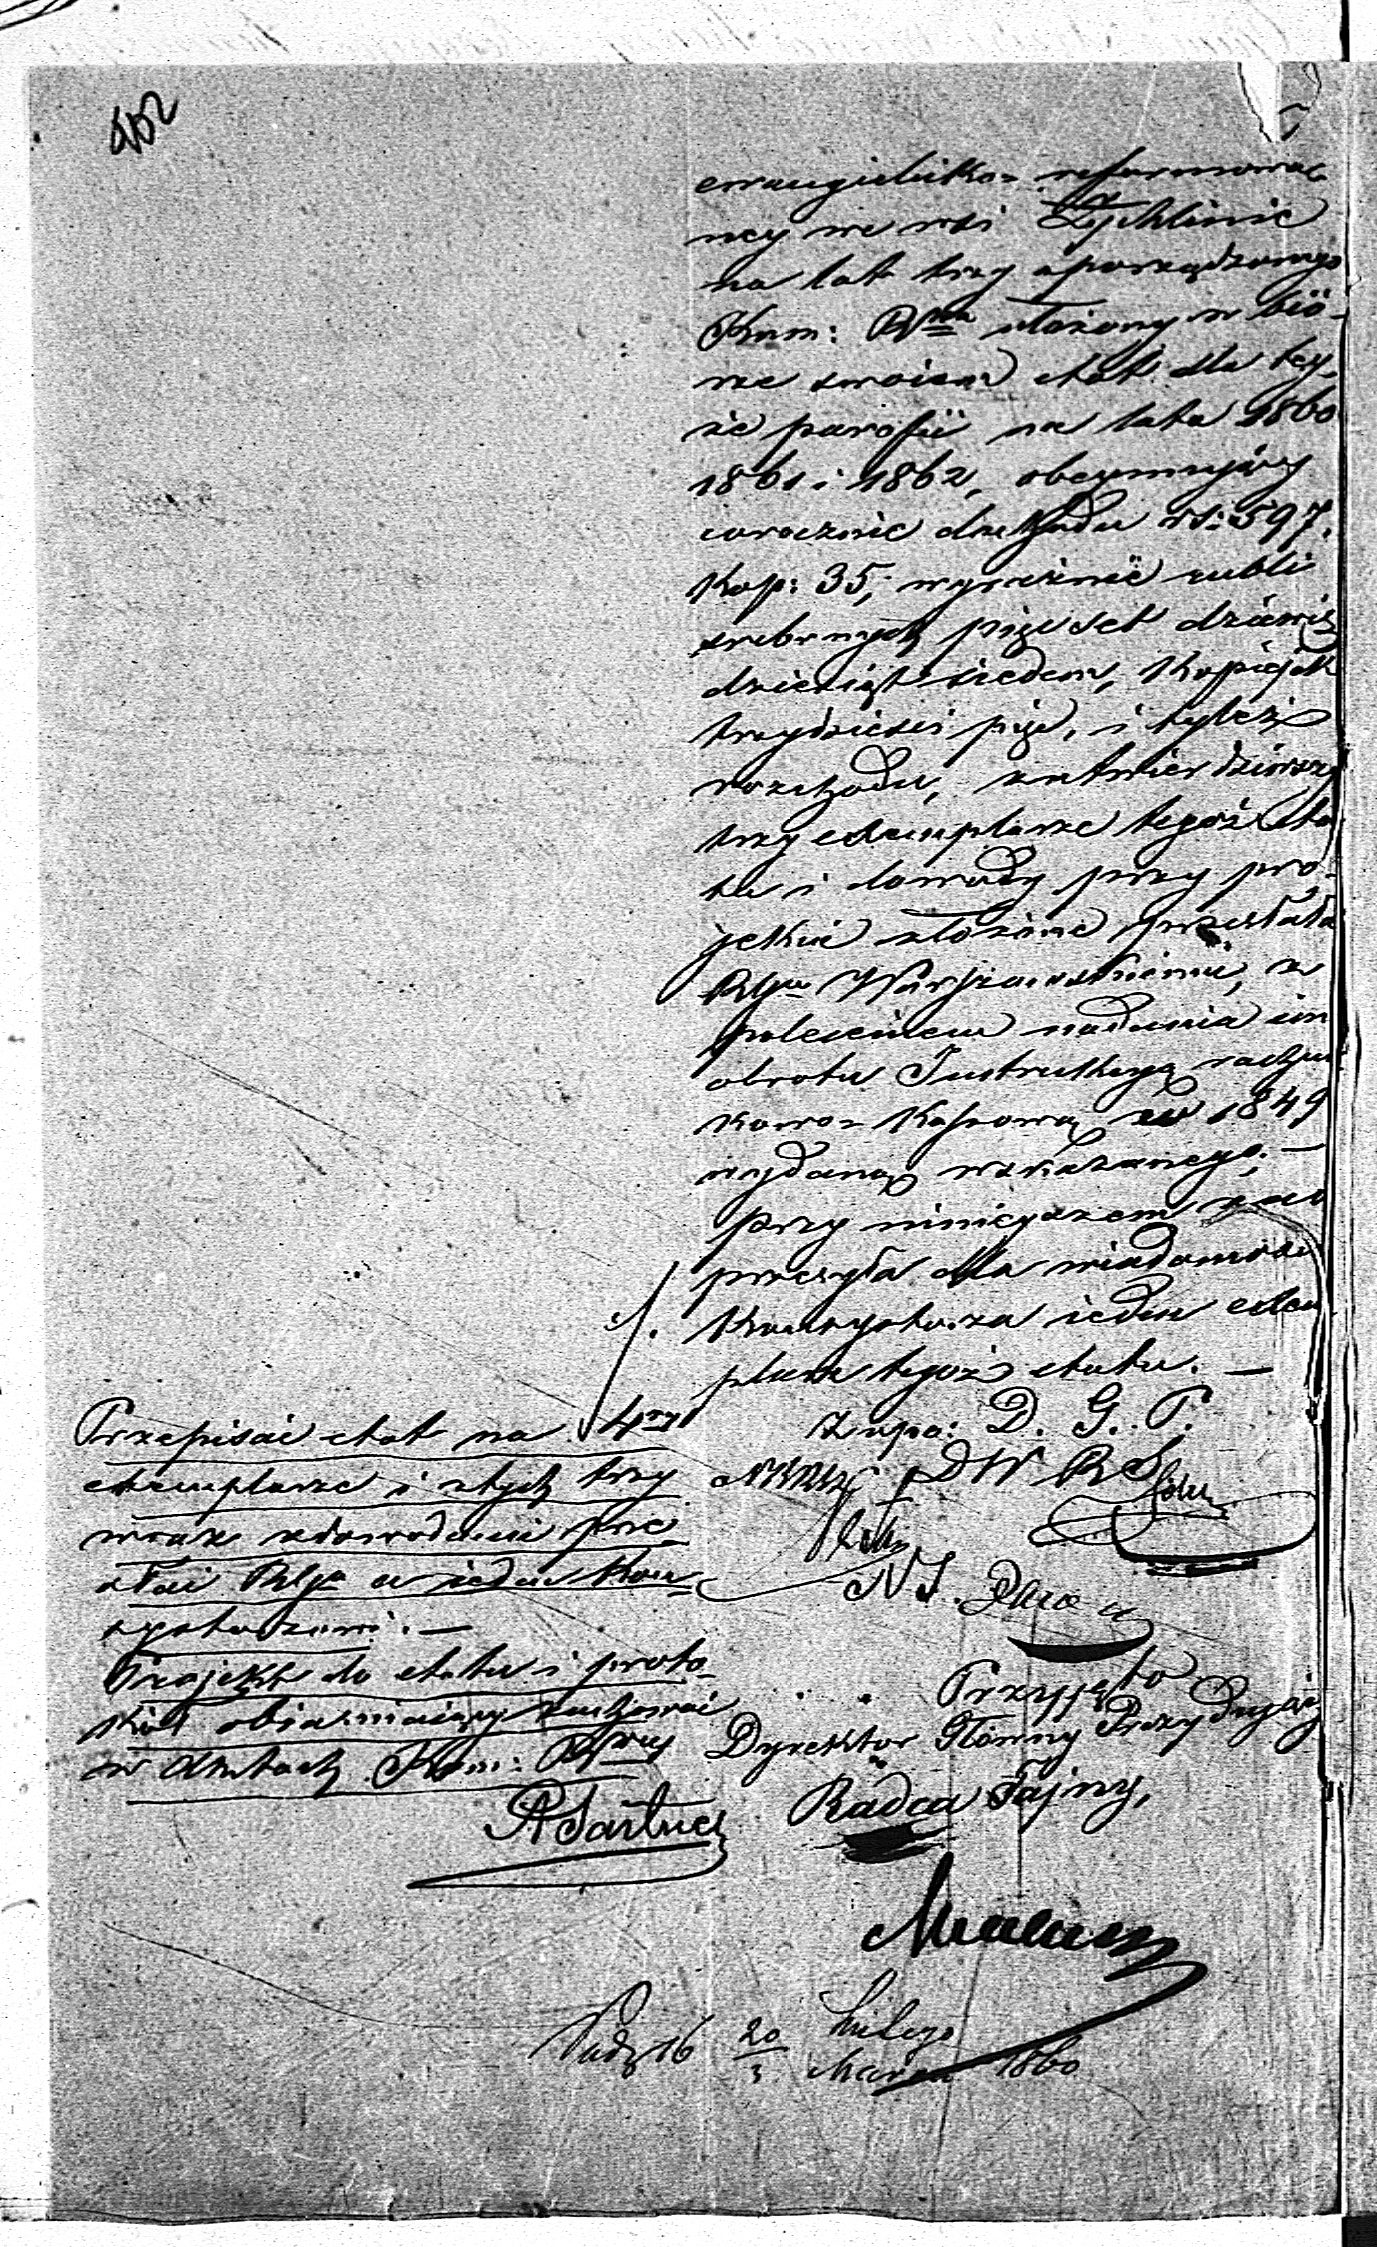 452
ewangielicko-reformowa-
ney we wsi Żychlinie
na lat trzy sporządzonego
Kom: Rwa ułożony w bió-
rze swoiem etat dla tey-
że parafii na lata 1860
1861 i 1862, obeymujący
corocznie dochodu rs: 597.
kop: 35, wyraźnie rubli
srebrnych pięćset dziewięć
dziesiąt siedem, kopiejek
trzydzieści pięć, i tyleż
rozchodu, zatwierdziwszy
trzy exemplarze tegoż eta
tu i dowody przy pro-
jekcie złożone przesłała
Rządowi Warszawskiemu, z
poleceniem nadania im
obrotu Instrukcyą rachun
kowo-kassową z r. 1849
wydaną wskazanego; —
przy ninieyszem zaś
przesyła dla wiadomości
Konsystorza ieden exem-
plarz tegoż etatu. —
z upo: D. G. P.
Przepisać etat na 4ry
exemplarze i z tych trzy
wraz z dowodami prze
słać Rzą a jeden Kon-
systorzowi. —
Projekt do etatu i proto-
kół obiaśniaiący zachować
w aktach Kom: Rwey
Przyjęto
Dyrektor Główny Prezydujący
Radca Tajny,
20 Lutego
3 Marca 1860